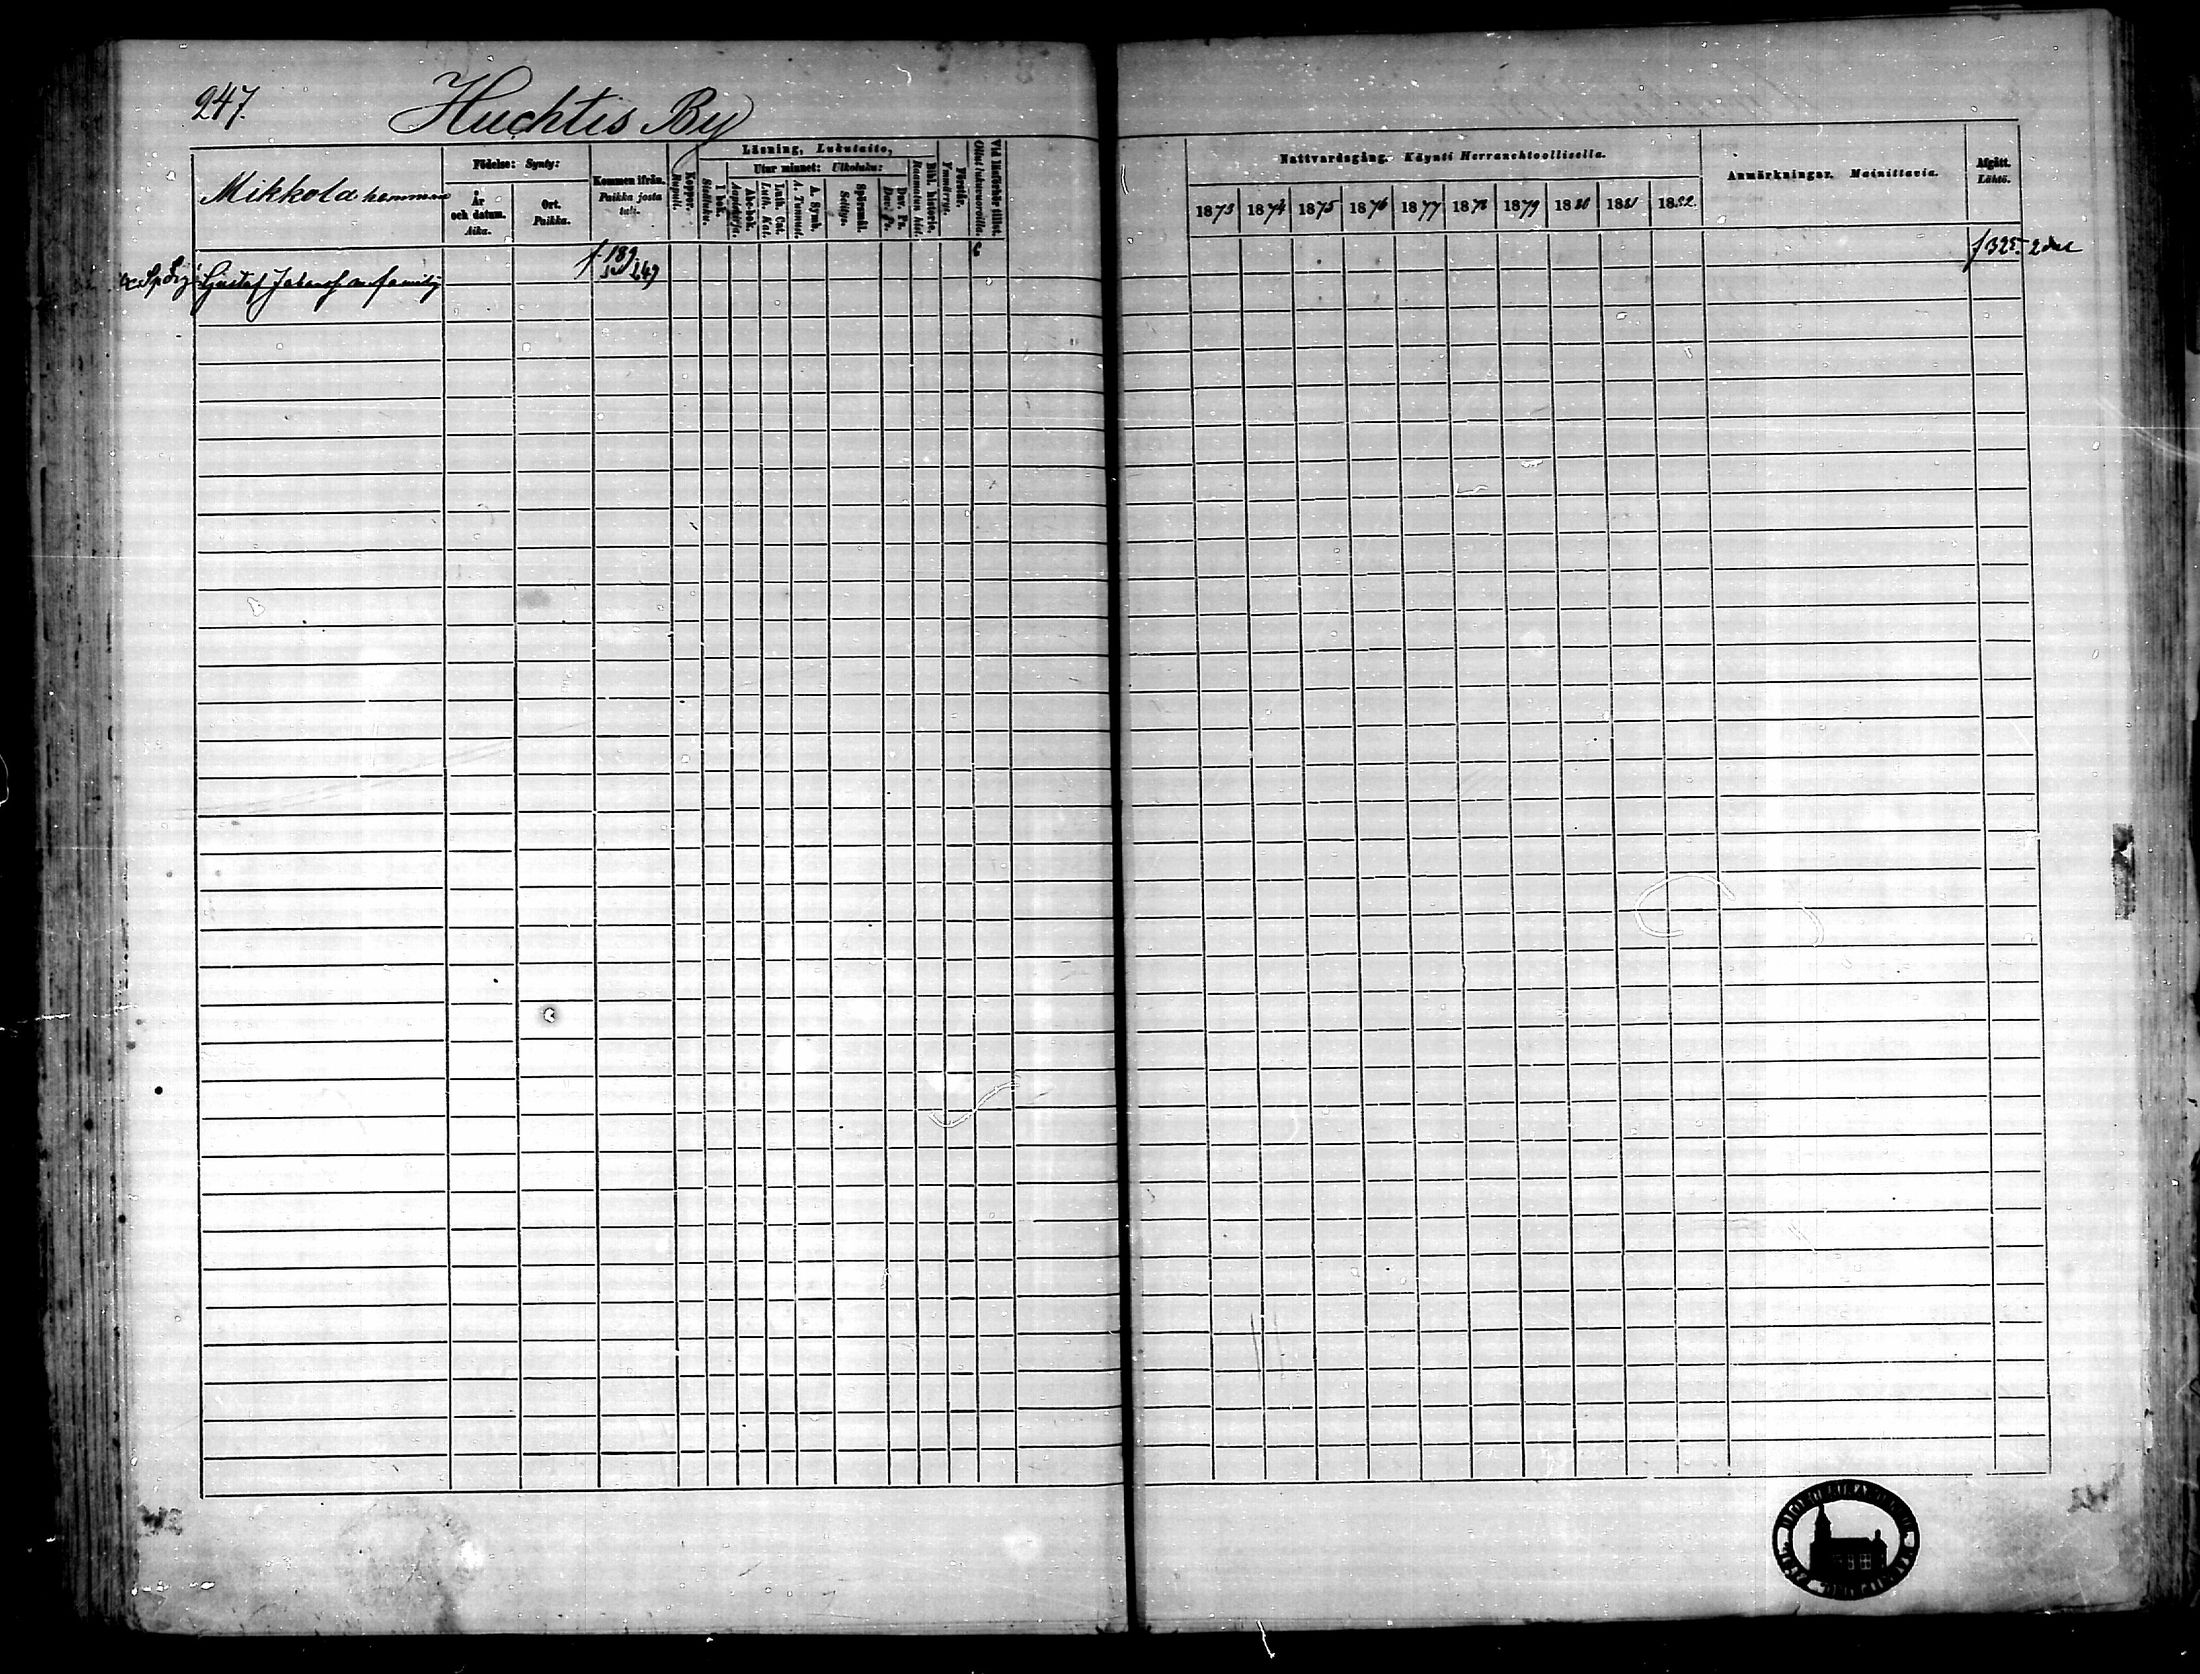 247.
Huchtis By
Mikkola hemman
Födelse: Synty:
År och datum. Aika.
Ort. Paikka.
Kommen ifrån. Paikka josta tuli.
Koppor. Rupuli.
Läsning, Lukutaito,
I bok. Sisäluku.
Utur minnet: Ulkoluku:
Abc-bok. Aapiskirja.
Luth. Cat. Luth. Kat.
A. Symb. A. Tunnut.
Spörsmål. Selitys.
Dav. Ps. Dav. Ps.
Bibl. historie. Raamatun hist.
Förstår. Ymmärrys.
Vid läsförhör tillst. Ollut lukuvuoroilla.
Nattvardsgång. Käynti Herranehtoollisella.
1873 1874 1875 1876 1877 1878 1879 1880 1881 1882
Anmärkningar. Mainittavia.
Afgått. Lähtö.
f. 189
249
f 325. 2 del
Gustaf m familj